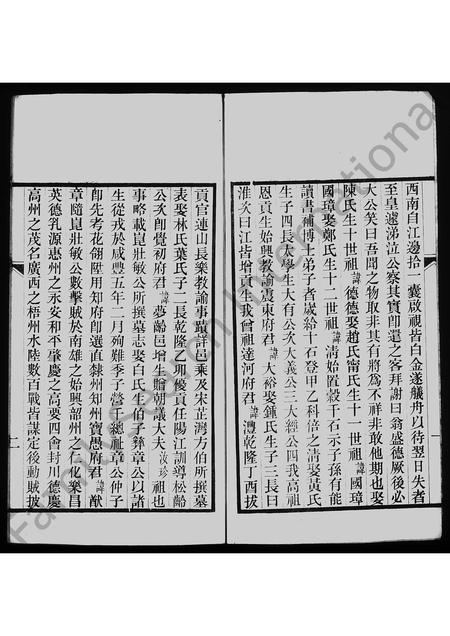 西南自江邊拾一囊啟視皆白金遂艤舟以待翌日失者
至皇遽涕泣公察其實即還之客拜謝曰翁盛德厥後必
大公笑曰吾聞之物取非其有將為不祥非敢他期也娶
陳氏生十世祖諱德德娶趙氏甯氏生十一世祖諱國璋
國璋娶鄭氏生十二世祖諱清始置穀千石示子孫有能
讀書補博士弟子者歲給十石登甲乙科倍之清娶黃氏
生子四長太學生大有公次大義公三大經公四我高祖
恩貢生始興教諭震東府君諱大裕娶鍾氏生子三長曰
淮次曰江皆增貢生我曾祖達河府君諱灃乾隆丁酉拔
貢官連山長樂教諭事蹟詳邑乘及宋芷灣方伯所撰墓
表娶林氏葉氏子二長乾隆乙卯優貢任陽江訓導松齡
公次即覺初府君諱夢齡邑增生贈朝議大夫汝珍祖也
事略載崑壯敏公所撰墓志娶白氏生伯子彝章公以諸
生從戎於咸豐五年二月殉難季子謍千總祉章公仲子
即先考花翎陞用知府即選直隸州知州寶愚府君諱猷
章隨崑壯敏公數擊賊於南雄之始興韶州之仁化樂昌
英德乳源惠州之永安和平肇慶之高要四會封川德慶
高州之茂名廣西之梧州水陸數百戰皆謀定後動賊披
二
FamilySearch International